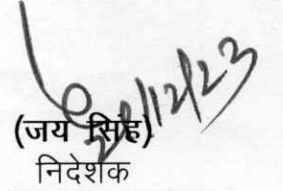 22/12/23
(जय सिंह)
निदेशक